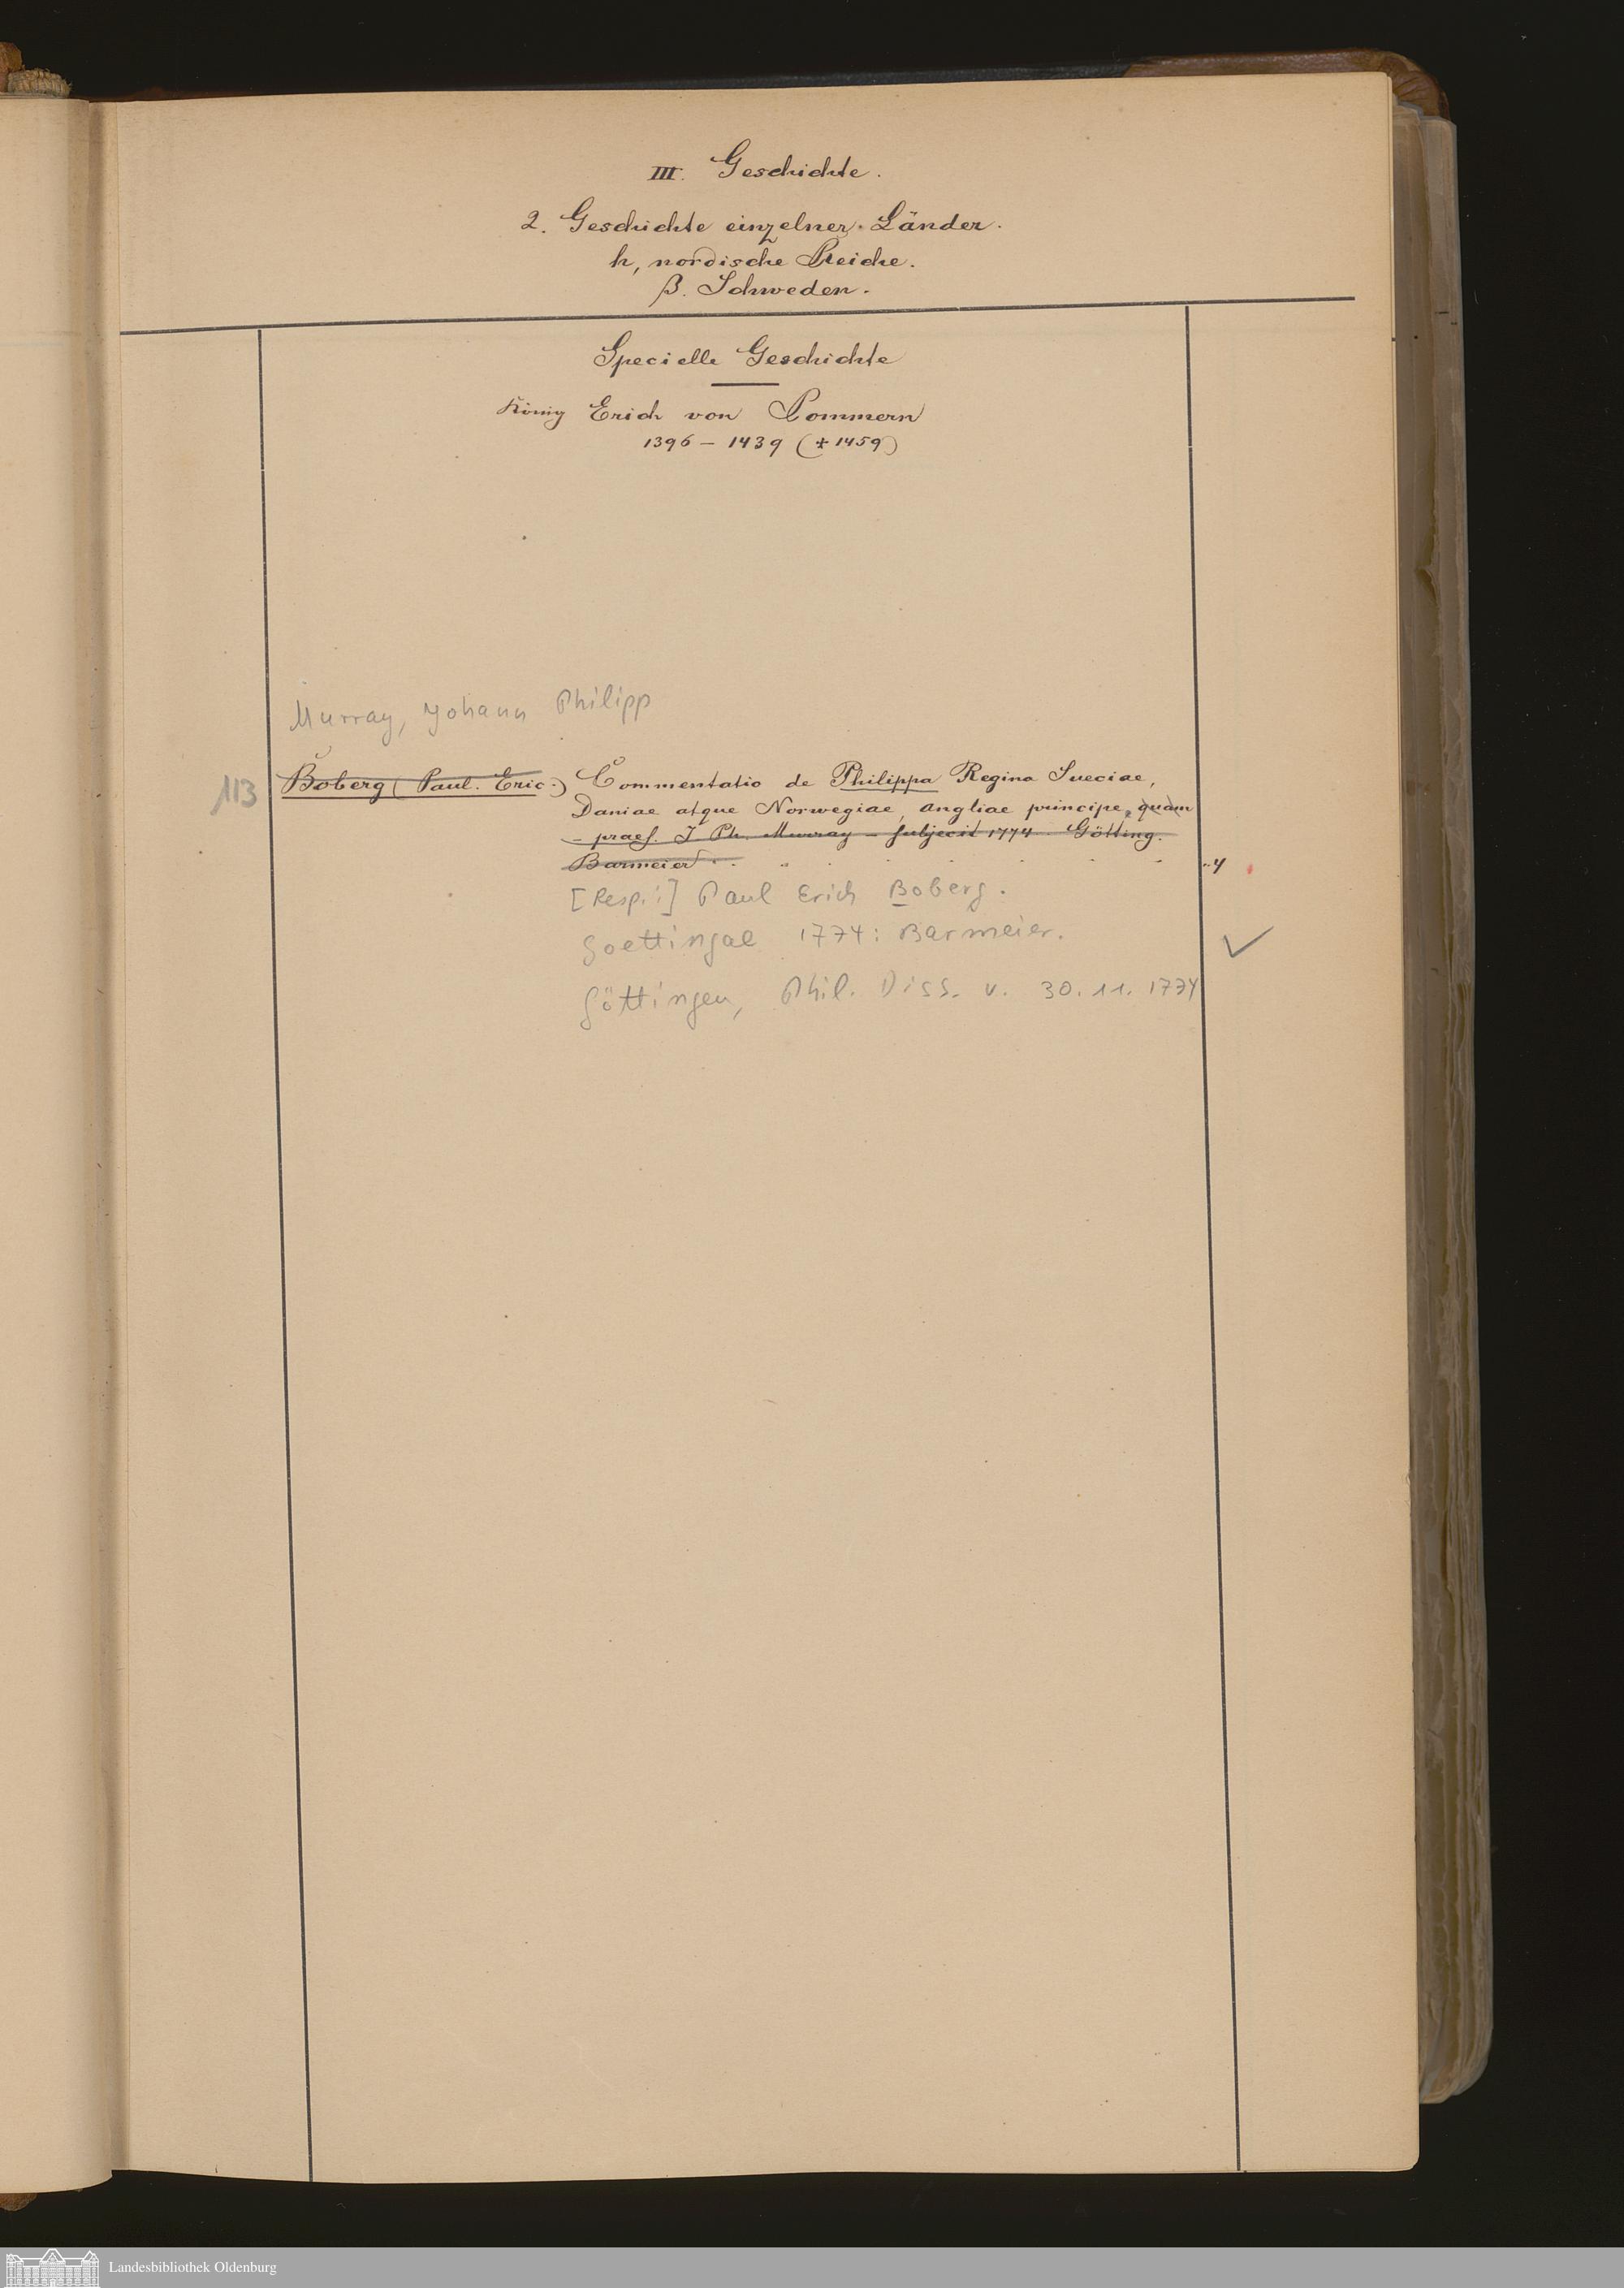 III. Geschichte.
2. Geschichte einzelner Länder.
h, nordische Reiche.
β. Schweden.
Specielle Geschichte
König Erich von Pommern
1396 – 1439 (+ 1459)
Murray, Johann Philipp
113 Boberg (Paul. Eric.) Commentatio de Philippa Regina Sueciae,
Daniae atque Norwegiae, Angliae principe, quam
– praes. J Ph. Murray – subjecit 1774. Götting.
Barmeier 4
[Resp.:] Paul Erich Boberg.
Goettingae 1774: Barmeier.
Göttingen, Phil. Diss. v. 30.11.1774
Landesbibliothek Oldenburg